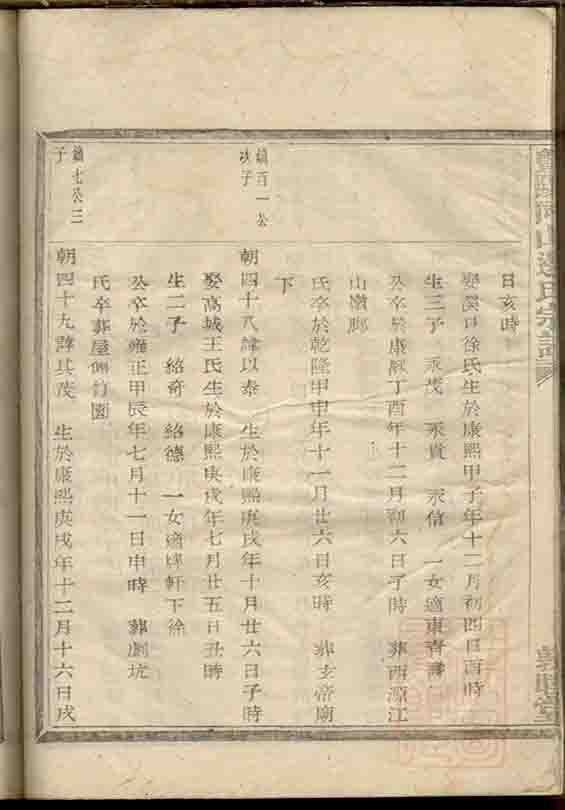 日亥時
娶溪口徐氏生於康熙甲子年十二月初四日酉時
生三子 永茂 永貴 永信 一女適東青
公卒於康熙丁酉年十二月初六日子時 葬西源江
山嶺脚
氏卒於乾隆甲申年十一月廿六日亥時 葬玄帝廟
下
鎮百一公
次子
朝四十八諱以泰 生於康熙庚戌年十月廿六日子時
娶高城王氏生於康熙庚戌年七月廿五日丑時
生二子 紹奇 紹德 一女適 軒下徐
公卒於雍正甲辰年七月十一日申時 葬 坑
氏卒葬屋側竹園
鎮七公三
子
朝四十九諱其茂 生於康熙庚戌年十二月十六日戌